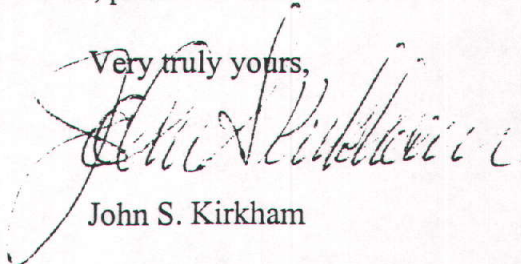 Very truly yours,
John S Kirkham
John S. Kirkham